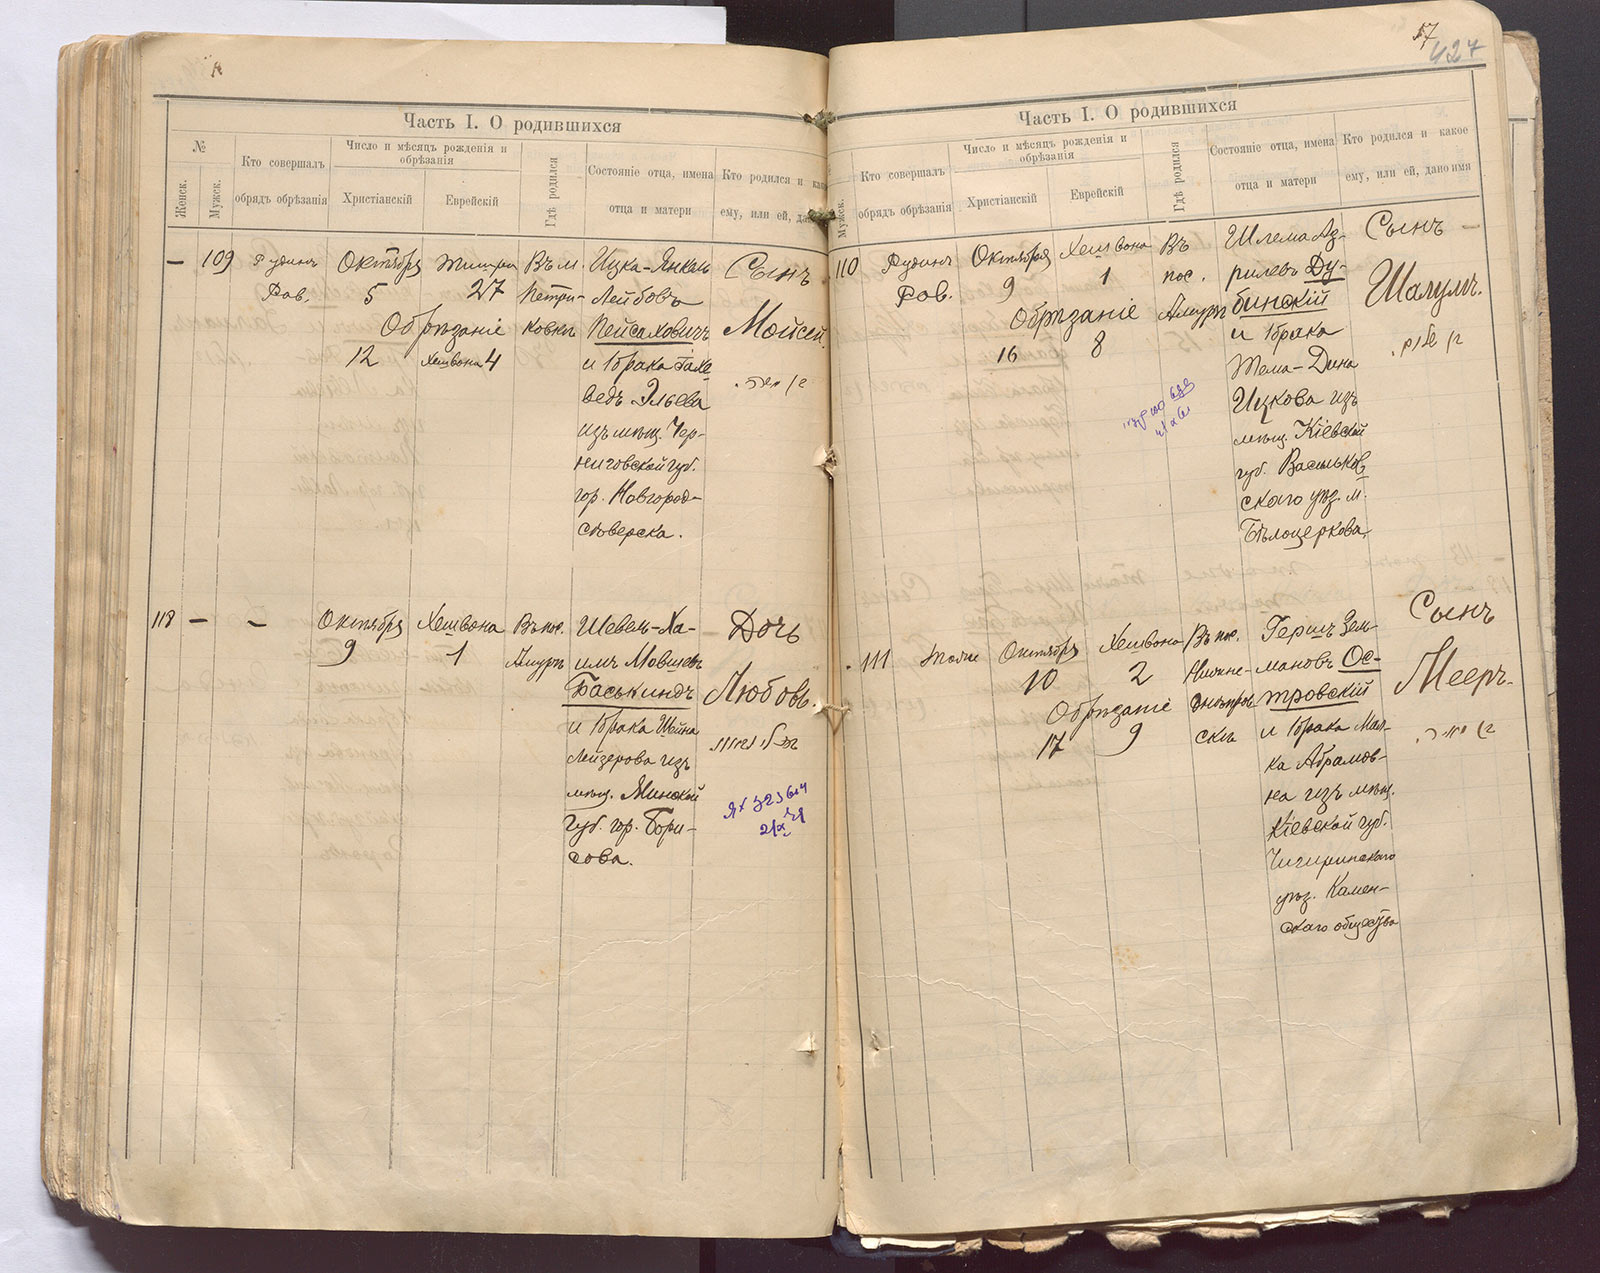 Часть I. О родившихся
№
Женск.
Мужск.
Кто совершалъ
обрядъ обрѣзанія
Число и мѣсяцъ рожденія и
обрѣзанія
Христіанскій
Еврейскій
Гдѣ родился
Состояніе отца, имена
отца и матери
Кто родился и како
ему, или ей, да
— 109
Рудинъ
Рав.
Октября
5
Тишри
27
Обрѣзаніе
12
Хешвона 4
Въ м.
Петри-
ковкѣ
Ицка-Янкель
Лейбовъ
Пейсаховичъ
и брака Iахе
ведъ Эльева
изъ мѣщ. Чер-
ниговской губ.
гор. Новгород-
сѣверска.
Сынъ
Мойсей.
118 — —
Октября
9
Хешвона
1
Въ пос.
Амуръ
Шевель-Ха-
имъ Мовшевъ
Баськиндъ
и брака Шейна
Лейзерова изъ
мѣщ. Минской
губ. гор. Бори-
сова.
Дочь
Любовь.
17
427
Часть I. О родившихся
Мужск.
Кто совершалъ
обрядъ обрѣзанія
Число и мѣсяцъ рожденія и
обрѣзанія
Христіанскій
Еврейскій
Гдѣ родился
Состояніе отца, имена
отца и матери
Кто родился и какое
ему, или ей, дано имя
110
Рудинъ
Рав.
Октября
9
Хешвона
1
Обрѣзаніе
16
8
Въ
пос.
Амуръ
Шлема Аз-
рилевъ Ду-
бинскій
и брака
Тема-Дина
Ицкова изъ
мѣщ. Кіевской
губ. Васильков
скаго уѣз. м.
Бѣлоцеркова.
Сынъ —
111
тотже
Октября
10
Хешвона
2
Обрѣзаніе
17
9
Въ пос.
Нижне-
днѣпров
скѣ
Гершъ Зель-
мановъ Ос-
тровскій
и брака Мал-
ка Абрамов-
на изъ мѣщ.
Кіевской губ.
Чигиринскаго
уѣз. Камен-
скаго общества
Сынъ
Мееръ.